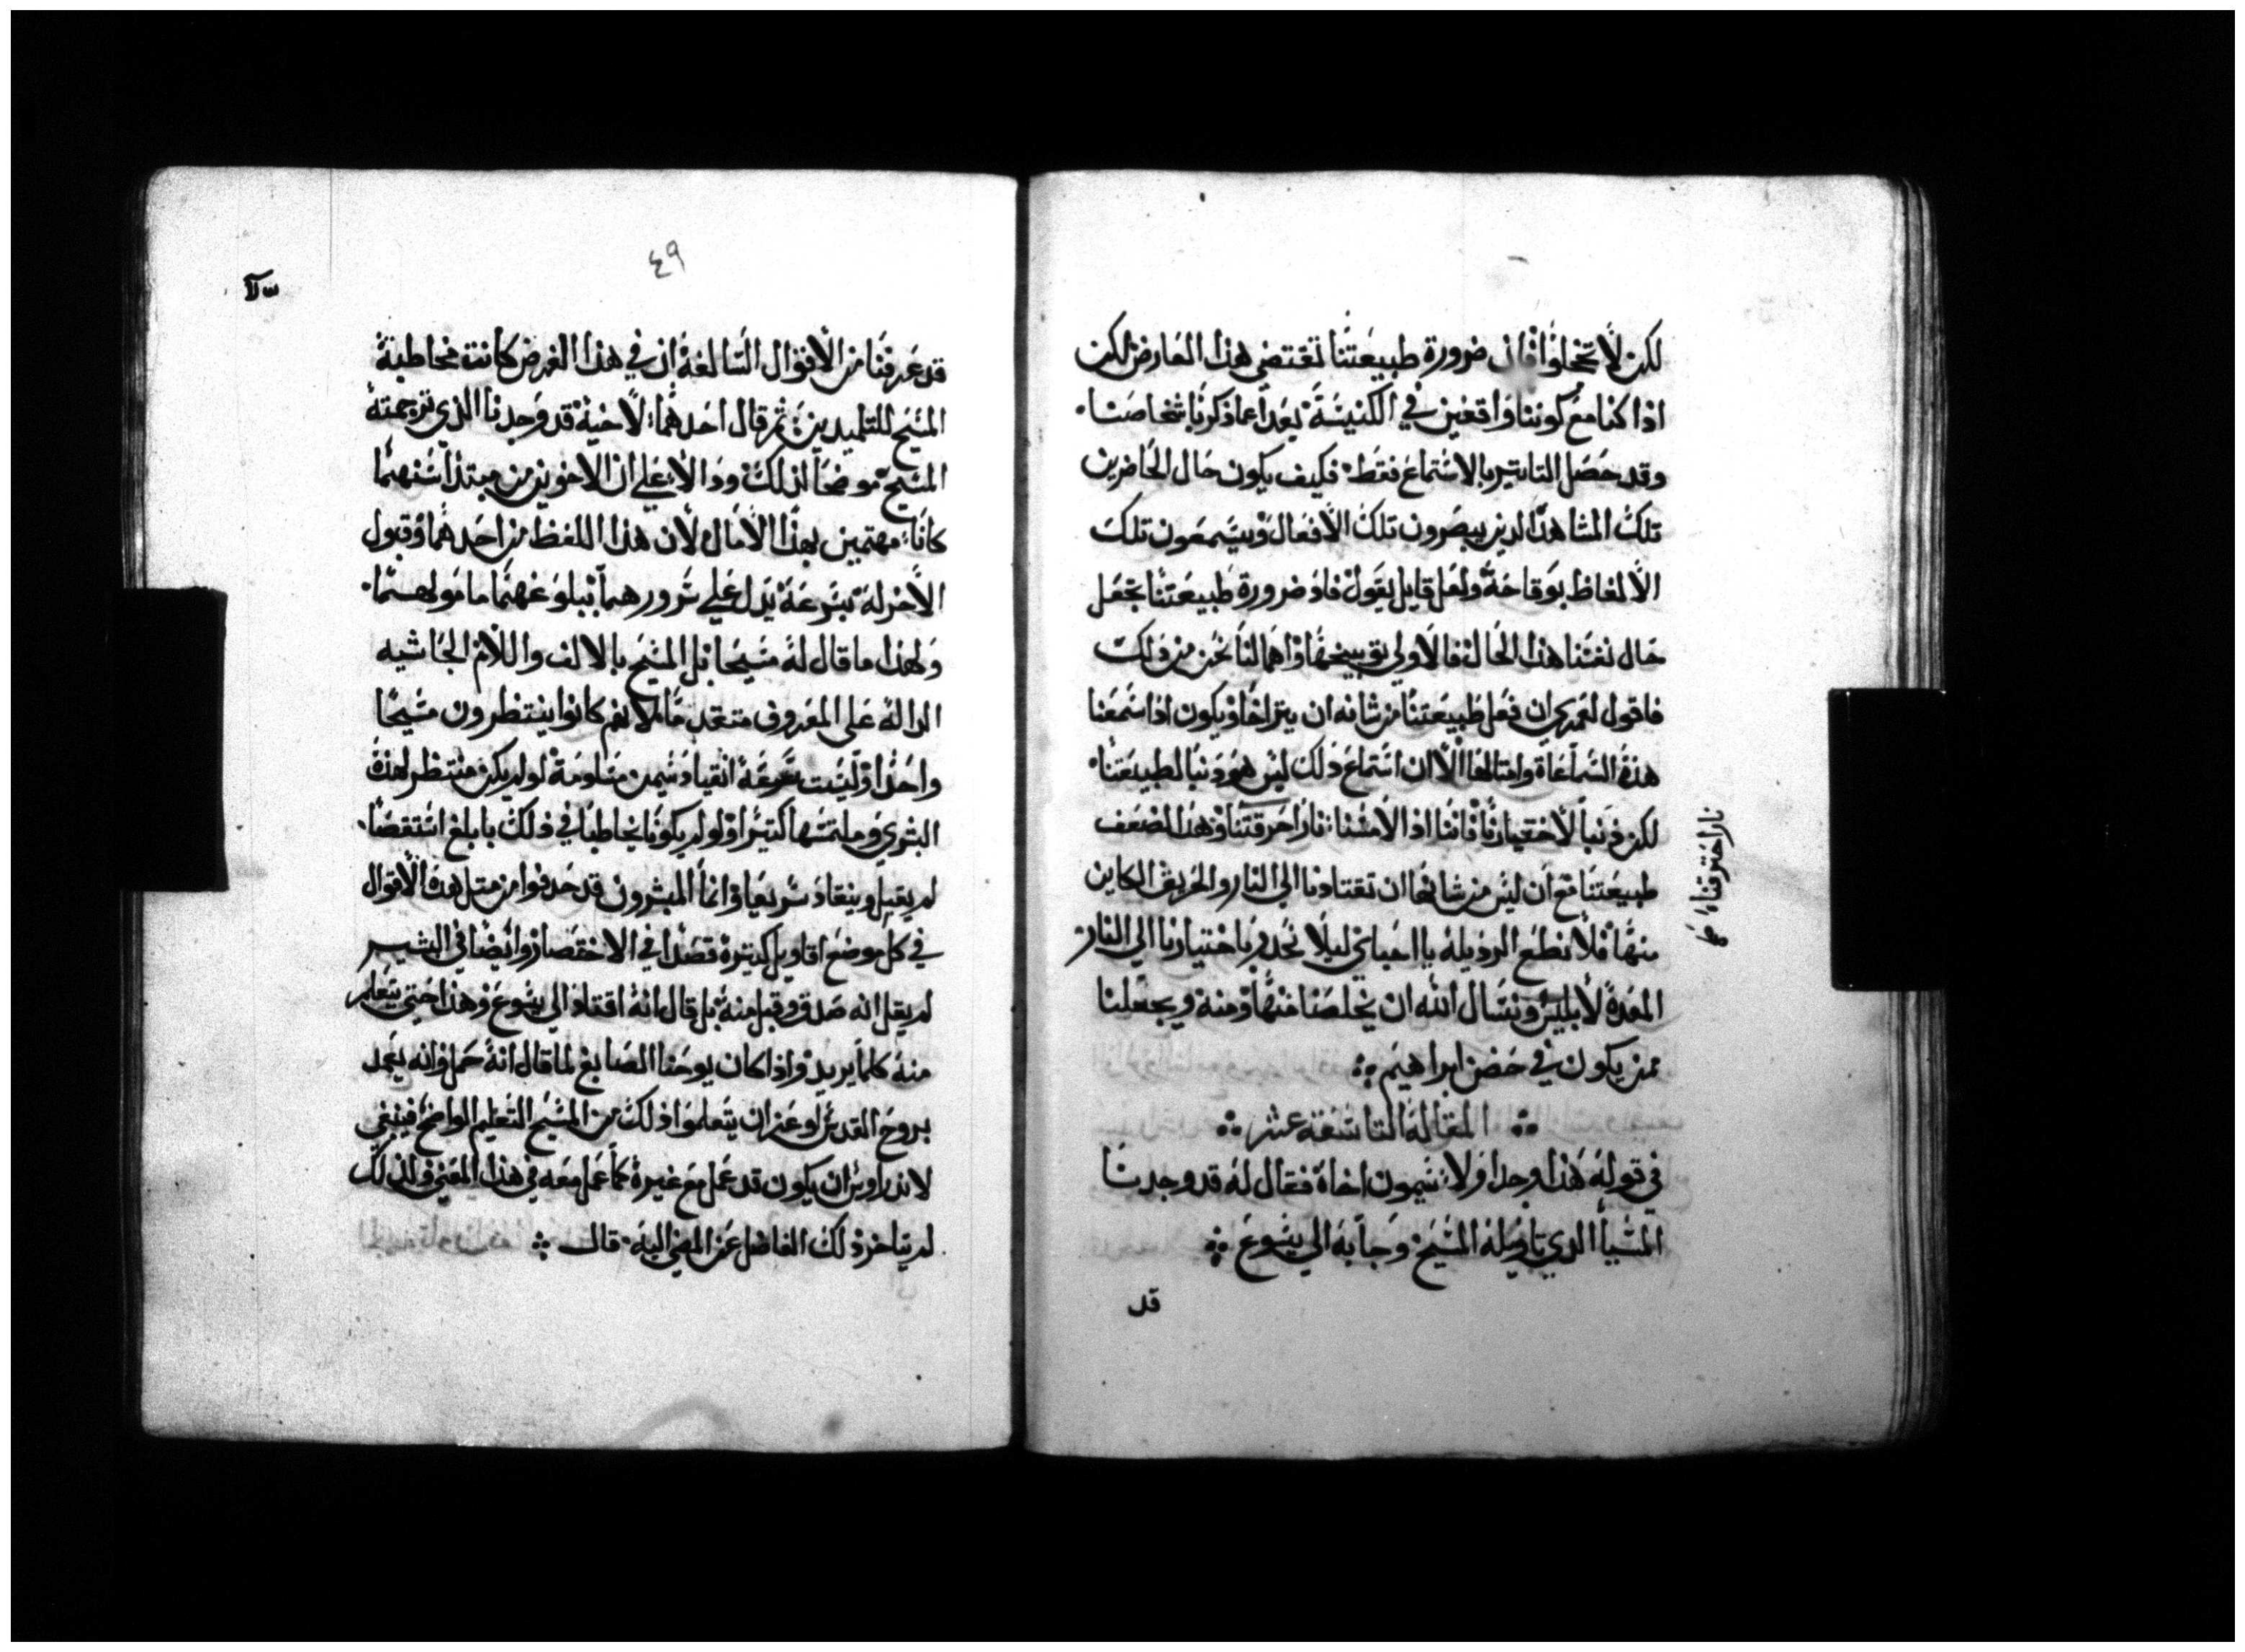 لكن لا تخلوا فان ضرورة طبيعتنا تقتضي هذا العارض لكن
اذا كنا مع كوننا واقفين في الكنيسة بعد اعما ذكرنا شخاصنا
وقد حصل التاتير بالاستماع فقط فكيف يكون حال الحاضرين
تلك المشاهد الدين يبصرون تلك الافعال ويسمعون تلك
الالفاظ بوقاحة ولعل قايل يقول فاذ ضرورة طبيعتنا تجعل
حال نفسنا هذا الحال فالاولي توبيخها واهمالنا نحن من ذلك
فاقول لعمري ان فعل طبيعتنا من شانه ان يتراخا ويكون اذا سمعنا
هذه السماعاة وامتالها الا ان استماع ذلك ليس هو دنبا لطبيعتنا
لكن دنبا لاختيارنا فاننا اذا لامسنا نارا حرقتنا وهذا لضعف
طبيعتنا مع ان ليس من شانها ان تقتادنا الي النار والحريق الكاين
منها فلا نطع الرديلة يا احباي ليلا نحدر باختيارنا الي النار
المعدة لابليس ونسال الله ان يخلصنا منها ومنه ويجعلنا
ممن يكون في حضن ابراهيم
المقالة التاسعة عشر
في قوله هذا وجد اولا شيمون اخاه فقال له قد وجدنا
المسيا الدي تاويله المسيح وجا به الي يسوع
قد
نارا احترقنا
٤٩
قد عرفنا من الاقوال السالفة ان في هذا الغرض كانت مخاطبة
المسيح للتلميدين ثم قال احدهما لاخيه قد وجدنا الذي ترجمته
المسيح موضحا لذلك ودالا علي ان الاخوين من مبتدا سنهما
كانا مهتمين بهذا الامال لان هذا اللفظ من احدهما وقبول
الاخر له بسرعة يدل علي سرورهما ببلوغهما مامولهما
ولهذا ما قال له مسيحا بل المسيح بالالف واللام الحاشيه
الدالة على المعروف متقدما لانهم كانوا ينتظرون مسيحا
واحدا وليست سرعة انقياد شيمن مداومة لو لم يكن منتظر لهذه
البشري وملتمسها كتيرا ولو لم يكونا تخاطبا في ذلك بابلغ استقصا
لم يقبل وينقاد سريعا وانما المبشرون قد حدفوا من متل هذه الاقوال
في كل موضع اقاويل كتيرة قصدا في الاختصار وايضا في البشير
لم يقل انه صدق وقبل منه بل قال انه اقتاد الي يسوع وهذا حتي يتعلم
منه كلما يريد واذا كان يوحنا الصابغ لما قال انه حمل وانه يعمد
بروح القدس او عز ان يتعلموا ذلك من المسيح التعليم الواضح فينبغي
لاندراوس ان يكون قد عمل مع غيره كما عمل معه في هذا المعني ولذلك
لم يتاخر ذلك الفاضل عن المضي اليه قال